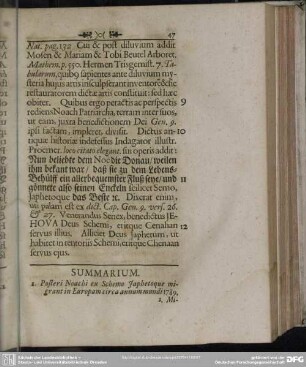 47
Nat. pag. 170 Cui & post diluvium addit
Mosen & Mariam & Tobi Beutel Arboret.
Mathem. p. 550. Hermen Trismegist. 7. Ta-
bularum, quib9 sapientes ante diluvium my-
steria hujus artis insculpserant inventorē dictæ
restauratorem dictæ artis constituit: sed hæc
obiter. Quibus ergo peractis ac perspectis 9
rediens Noach Patriarcha, terram inter suos,
ut eam, juxta benedictionem Dei Gen. 9.
ipsi factam, impleret, divisit. Dictus an- 10
tiquæ historiæ indefessus Indagator illustr.
Procenc. loco citato elegant. sui operis addit:
Nun beliebte dem Noe die Donau/ weilen
ihm bekant war/ daß sie zu dem Lebens-
Behülff ein allerbequemster Fluß seye/ und 11
gönnete also seinen Enckeln scilicet Semo,
Japhetoque das Beste ꝛc. Dixerat enim,
uti palam est ex dict. Cap. Gen. 9. vers. 26.
& 27. Venerandus Senex, benedictus JE-
HOVA Deus Schemi, eritque Cenahan 12
servus illius, Alliciet Deus Japhetum, ut
habitet in tentoriis Schemi, eritque Chenaan
servus ejus.
SUMMARIUM.
1. Posteri Noachi ex Schemo Japhetoque mi-
grant in Europam circa annum mundi 1789.
2. Mi-